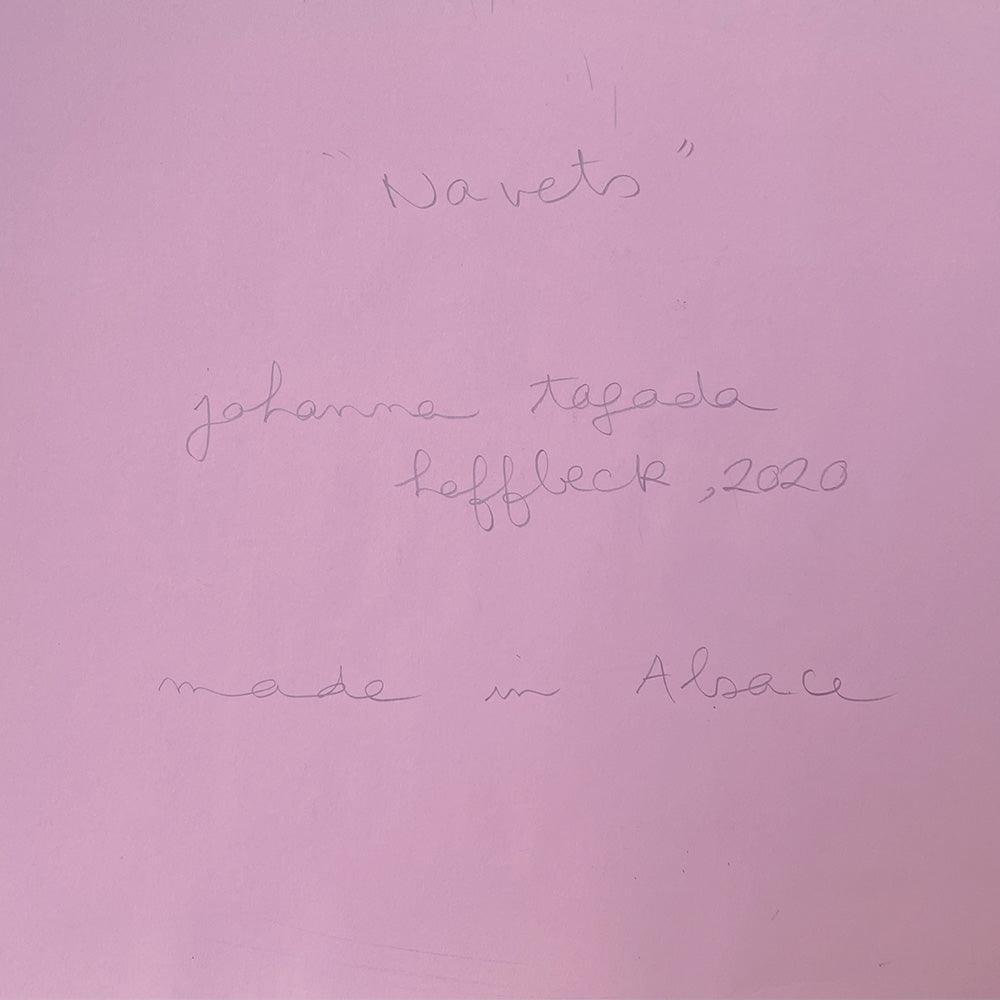 "Navets"
johanna tagada
hoffbeck, 2020
made in Alsace